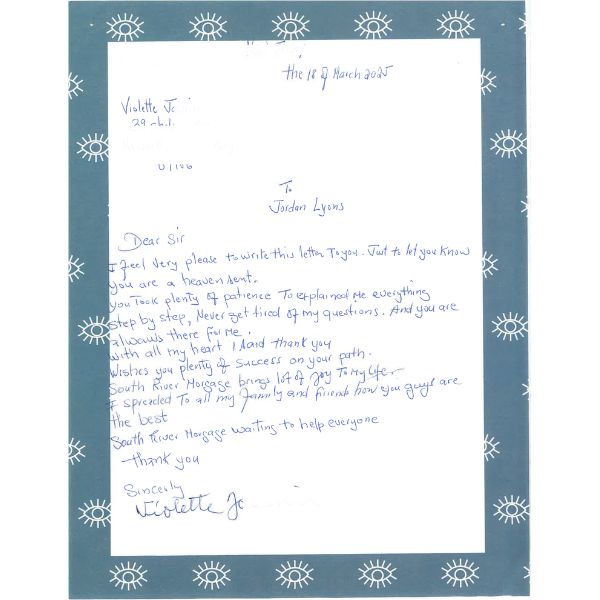 the 18 of March 2025
Violette J
29
To
Jordan Lyons
Dear Sir
I feel Very please to write this letter To you. Just to let you know
you are a heaven sent.
you Took plenty of patience To explained Me everything
step by step, Never get tired of my questions. And you are
always there for Me.
with all my heart I said thank you
Wishes you plenty of success on your path.
South River Morgage brings lot of joy To My life
I spreaded To all my family and friends how you guys are
the best
South River Morgage waiting to help everyone
thank you
Sincerly
Violette Jo